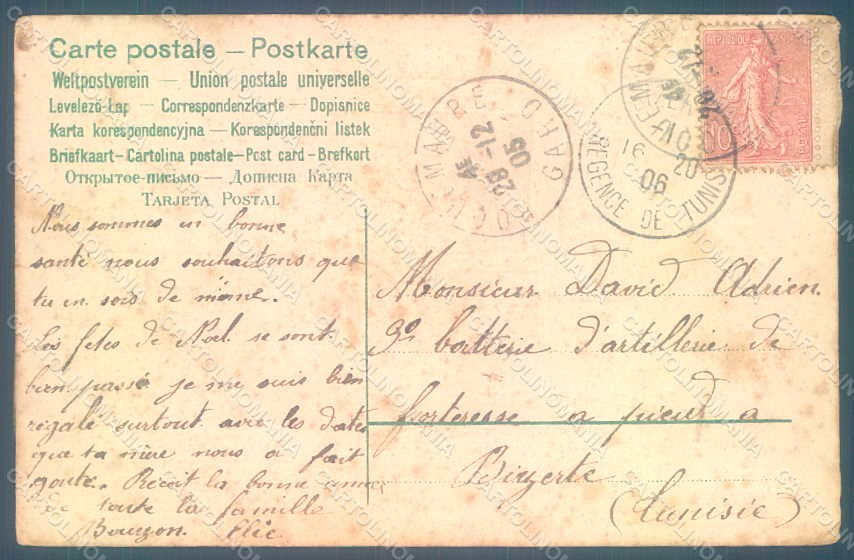 Carte postale — Postkarte
Weltpostverein — Union postale universelle
Levelező-Lap — Correspondenzkarte — Dopisnice
Karta korespondencyjna — Korespondenční listek
Briefkaart — Cartolina postale — Post card — Brefkort
Открытое-письмо — Дописна Карта
Tarjeta Postal
Nous sommes en bonne
santé nous souhaitons que
tu en sois de même.
Les fêtes de Noël se sont
bien passé je me suis bien
régalé surtout avec les dates
que ta mère nous a fait
goute. Reçoit la bonne
de toute la famille
Bouzon. Elie
Monsieur David Adrien.
9e batterie d'artillerie de
forteresse a pied a
Bizerte
(Tunisie)
GARD
28-12
05
REGENCE DE TUNIS
16
20
06
10
CARTOLINOMANIA